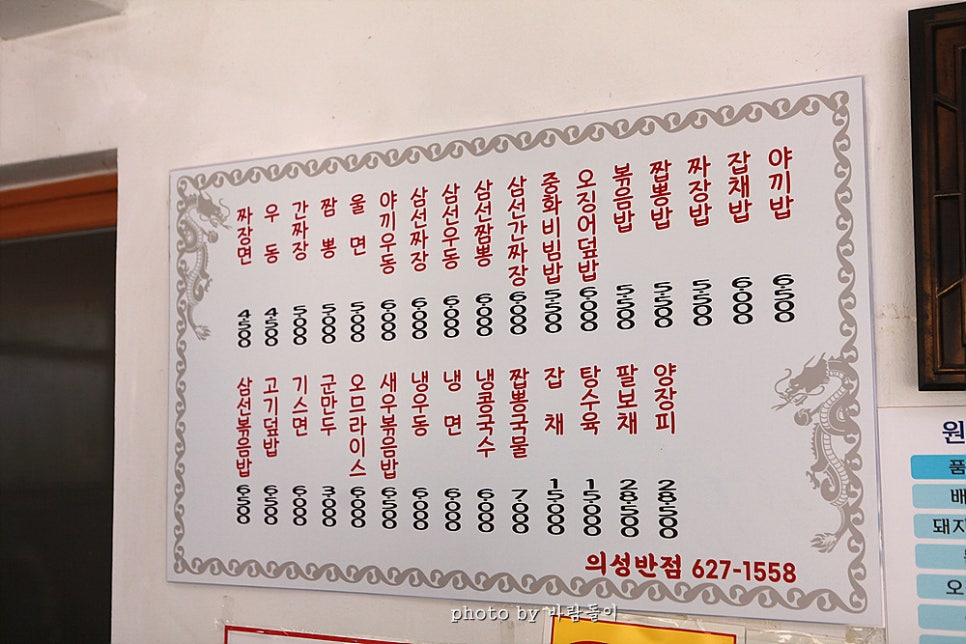 짜장면 4.500
우동 4.500
간짜장 5.000
짬뽕 5.000
울면 5.000
야끼우동 6.000
삼선짜장 6.000
삼선우동 6.000
삼선짬뽕 6.000
삼선간짜장 6.000
중화비빔밥 5.500
오징어덮밥 6.000
볶음밥 5.500
짭뽕밥 5.500
짜장밥 5.500
잡채밥 6.000
야끼밥 6.500
삼선볶음밥 6.500
고기덮밥 6.500
기스면 6.000
군만두 3.000
오므라이스 6.000
새우볶음밥 6.500
냉우동 6.000
냉면 6.000
냉콩국수 6.000
짭뽕국물 7.000
잡채 15.000
탕수육 15.000
팔보채 28.500
양장피 28.500
의성반점 627-1558
photo by 바람돌이
원
품
배
돼지
오